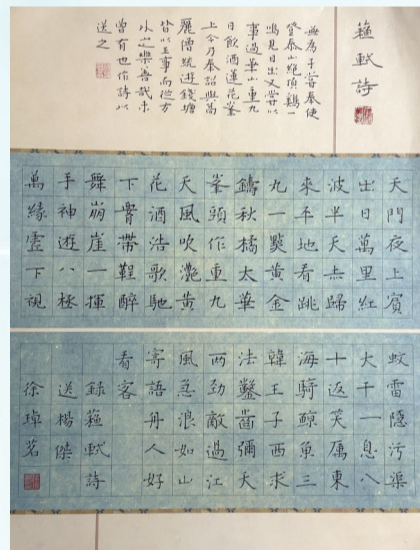 蘇軾詩
無為子嘗奉使
登泰山絕頂鷄一
鳴見日出又嘗以
事過華山重九
日飲酒蓮花峯
上今乃奉詔與高
麗僧統遊錢塘
皆以王事而從方
外之樂善哉未
曾有也作詩以
送之
天門夜上賓
出日萬里紅
波半天赤歸
來平地看跳
丸一點黃金
鑄秋橘太華
峯頭作重九
天風吹灔黃
花酒浩歌馳
下腰帶鞓醉
舞崩崖一揮
手神遊八極
萬緣虛下視
蚊雷隱污渠
大千一息八
十返笑厲東
海騎鯨魚三
韓王子西求
法鑿齒彌天
兩勁敵過江
風急浪如山
寄語舟人好
看客
錄蘇軾詩
送楊傑
徐茗